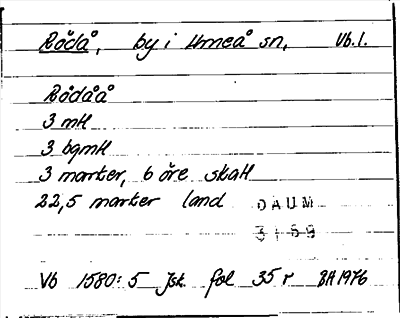 Rödå, by i Umeå sn, Vb.l.
Rödåå
3 mtl
3 bgmtl
3 marker, 6 öre skatt
22,5 marker land DAUM
3159
Vb 1580:5 Jsk fol 35 r BH 1976